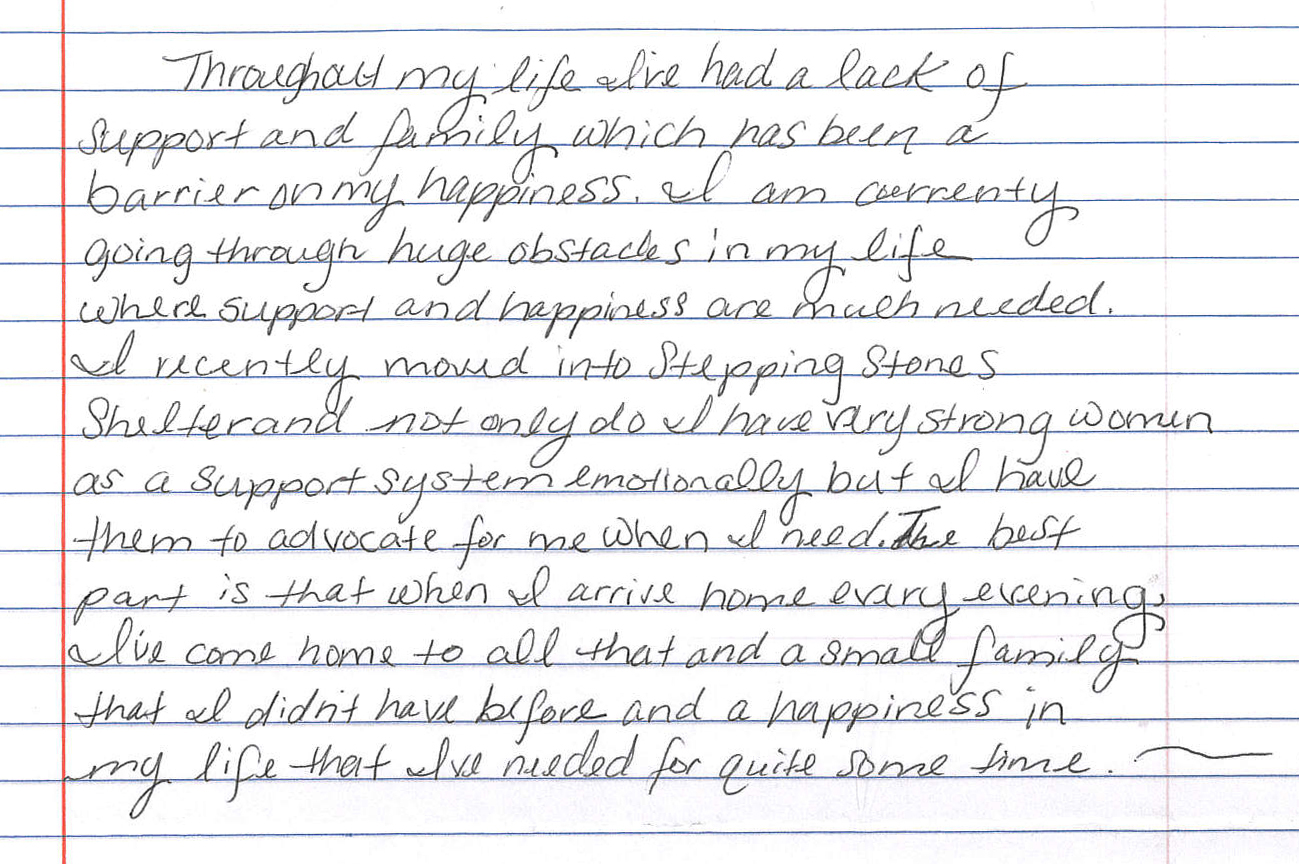 Throughout my life I've had a lack of
support and family which has been a
barrier on my happiness. I am currenty
going through huge obstacles in my life
where support and happiness are much needed.
I recently moved into Stepping Stones
Shelter and not only do I have very strong women
as a support system emotionally but I have
them to advocate for me when I need. The best
part is that when I arrive home evary evening,
I've come home to all that and a small family
that I didn't have before and a happiness in
my life that I've needed for quite some time.